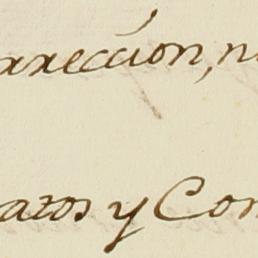 rrección, n
atos y Con